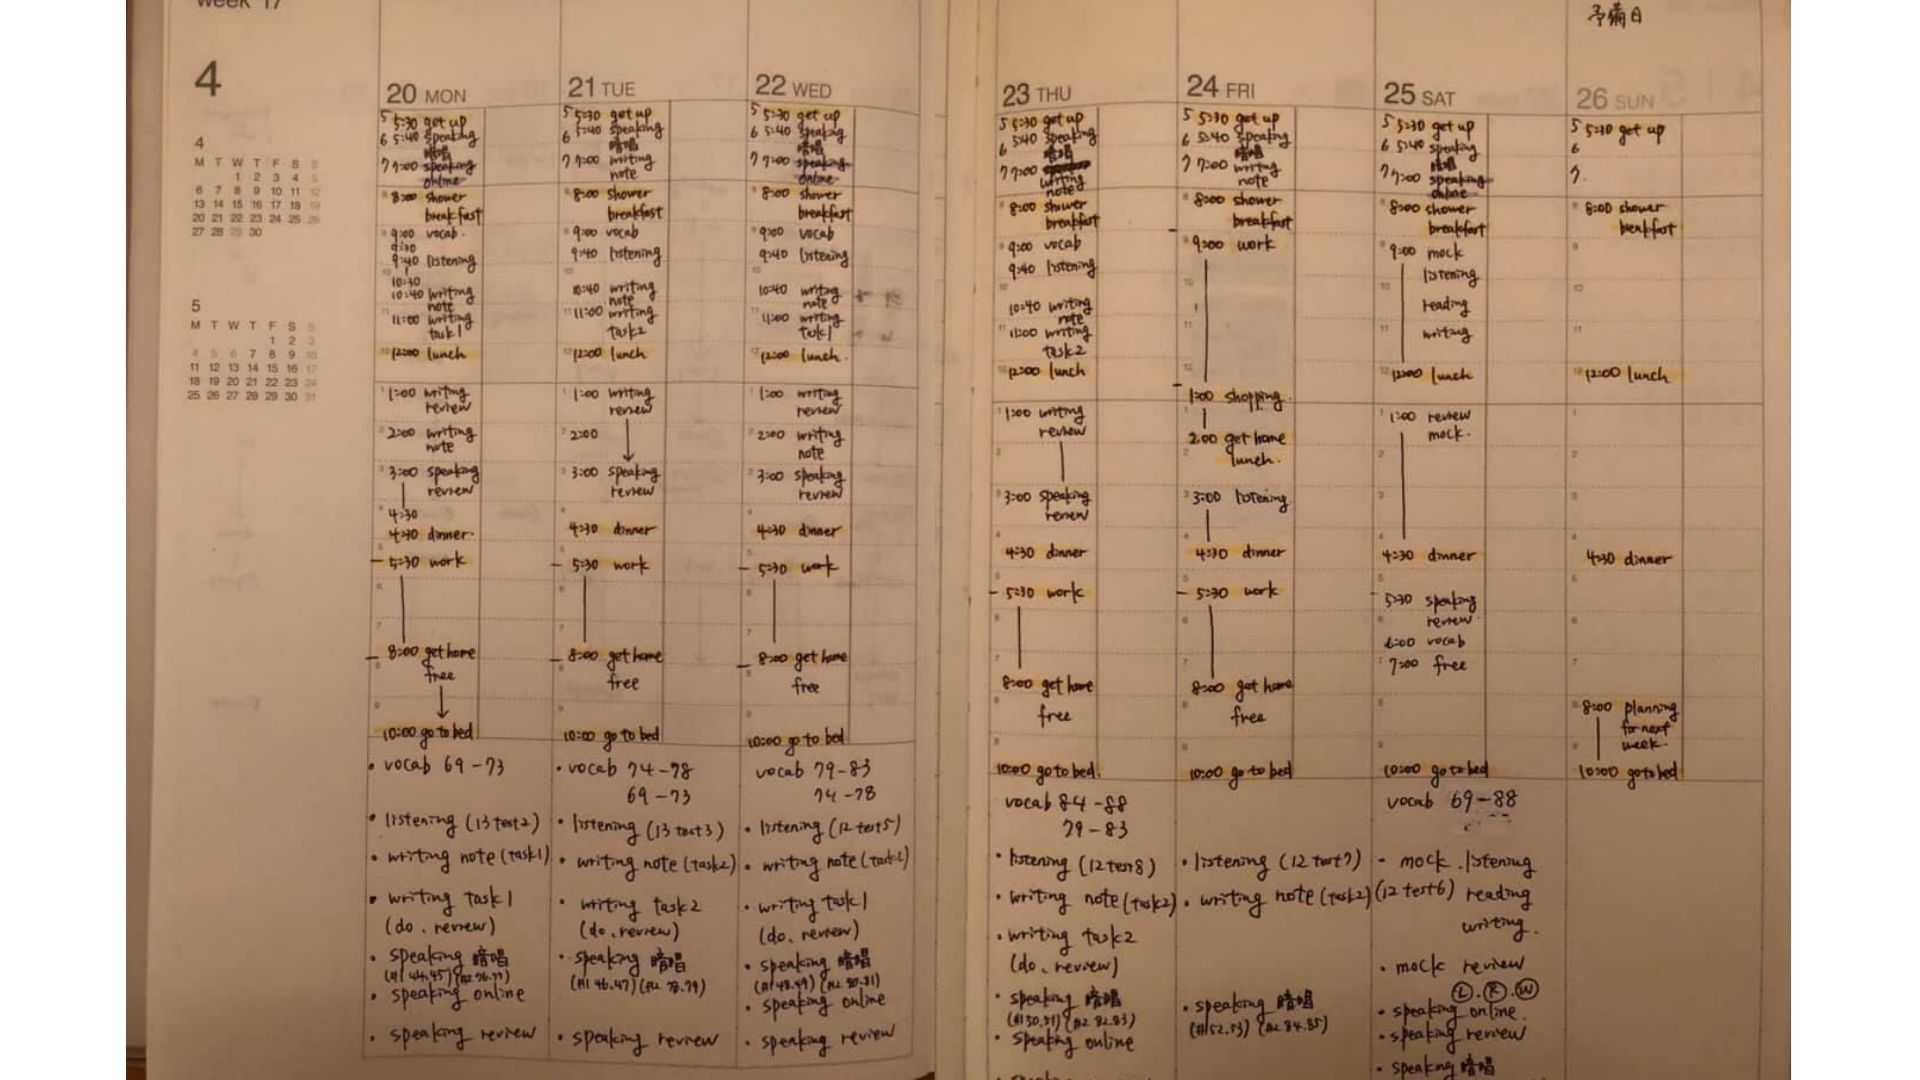 week 17
4
4
M T W T F S S
1 2 3 4 5
6 7 8 9 10 11 12
13 14 15 16 17 18 19
20 21 22 23 24 25 26
27 28 29 30
5
M T W T F S S
1 2 3
4 5 6 7 8 9 10
11 12 13 14 15 16 17
18 19 20 21 22 23 24
25 26 27 28 29 30 31
20 MON
5 5:30 get up
6 5:40 speaking
暗唱
7 7:00 speaking
online
8:00 shower
breakfast
9:00 vocab.
9:30
9:40 listening
10:30
10:40 writing
note
11:00 writing
task1
12:00 lunch
1:00 writing
review
2:00 writing
note
3:00 speaking
review
4:30
4:30 dinner.
5:30 work
8:00 get home
free
10:00 go to bed
• vocab 69-73
• listening (13 test2)
• writing note (task1)
• writing task1
(do. review)
• speaking 暗唱
(#1 44.45) (#2 76.77)
• speaking online
• speaking review
21 TUE
5 5:30 get up
6 5:40 speaking
暗唱
7 7:00 writing
note
8:00 shower
breakfast
9:00 vocab
9:40 listening
10:40 writing
note
11:00 writing
task2
12:00 lunch
1:00 writing
review
2:00
3:00 speaking
review
4:30 dinner
5:30 work
8:00 get home
free
10:00 go to bed
• vocab 74-78
69-73
• listening (13 test3)
• writing note (task2)
• writing task2
(do. review)
• speaking 暗唱
(#1 46.47) (#2 78.79)
• speaking review
22 WED
5 5:30 get up
6 5:40 speaking
暗唱
7 7:00 speaking
online
8:00 shower
breakfast
9:00 vocab
9:40 listening
10:40 writing
note
11:00 writing
task1
12:00 lunch.
1:00 writing
review
2:00 writing
note
3:00 speaking
review
4:30 dinner
5:30 work
8:00 get home
free
10:00 go to bed
vocab 79-83
74-78
• listening (12 test5)
• writing note (task1)
• writing task1
(do. review)
• speaking 暗唱
(#1 48.49) (#2 80.81)
• speaking online
• speaking review
23 THU
5 5:30 get up
5:40 speaking
6 暗唱
7 7:00
writing
note
8:00 shower
breakfast
9:00 vocab
9:40 listening
10:40 writing
note
11:00 writing
task2
12:00 lunch
1:00 writing
review
3:00 speaking
review
4:30 dinner
5:30 work
8:00 get home
free
10:00 go to bed.
vocab 84-88
79-83
• listening (12 test8)
• writing note (task2)
• writing task2
(do. review)
• speaking 暗唱
(#1 50.51) (#2 82.83)
• speaking online
24 FRI
5 5:30 get up
6 5:40 speaking
暗唱
7 7:00 writing
note
8:00 shower
breakfast
9:00 work
1:00 shopping.
2:00 get home
lunch.
3:00 listening
4:30 dinner
5:30 work
8:00 get home
free
10:00 go to bed
• listening (12 test7)
• writing note (task2)
• speaking 暗唱
(#1 52.53) (#2 84.85)
25 SAT
5 5:30 get up
6 5:40 speaking
暗唱
7 7:00 speaking
online
8:00 shower
breakfast
9:00 mock
listening
reading
writing
12:00 lunch
1:00 review
mock.
4:30 dinner
5:30 speaking
review
6:00 vocab
7:00 free
10:00 go to bed
vocab 69-88
• mock. listening
(12 test6) reading
writing.
• mock review
Ⓛ.Ⓡ.Ⓦ
• speaking online.
• speaking review
• speaking 暗唱
予備日
26 SUN
5 5:30 get up
6
7
8:00 shower
breakfast
12:00 lunch
4:30 dinner
8:00 planning
for next
week.
10:00 go to bed